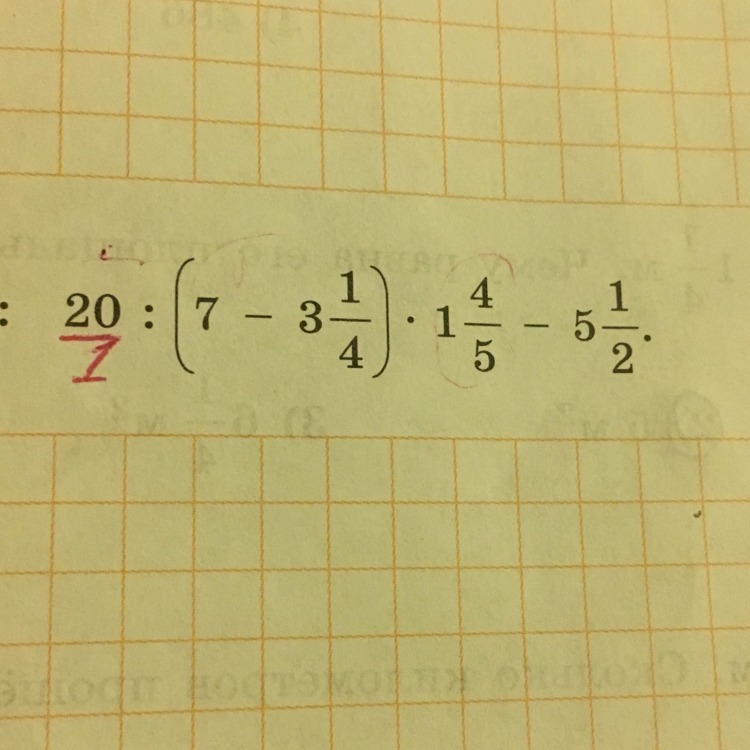 : 20 : (7 − 3 1/4) · 1 4/5 − 5 1/2.
1